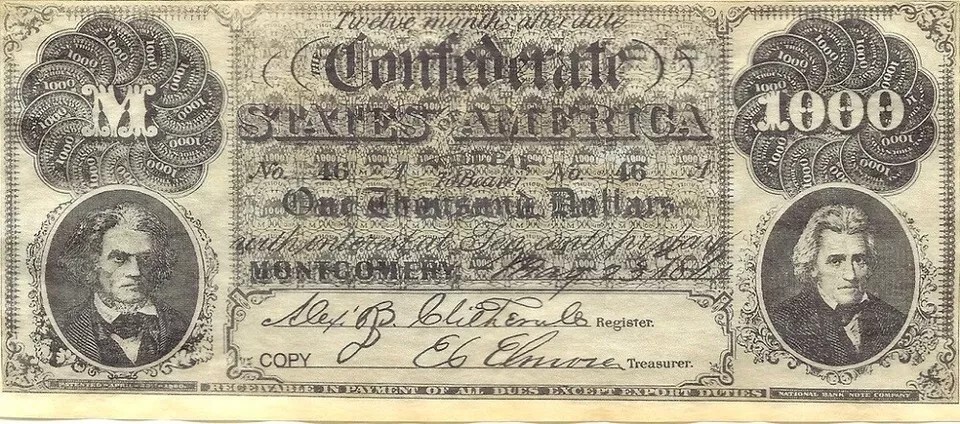 Twelve months after date
THE Confederate
STATES OF AMERICA
M
1000
PAY
No. 46 A to Bearer No. 46 A
One Thousand Dollars
with interest at Ten cents per day
MONTGOMERY, May 23
Alexr. B. Clitherall Register.
COPY E C Elmore Treasurer.
PATENTED
RECEIVABLE IN PAYMENT OF ALL DUES EXCEPT EXPORT DUTIES
NATIONAL BANK NOTE COMPANY